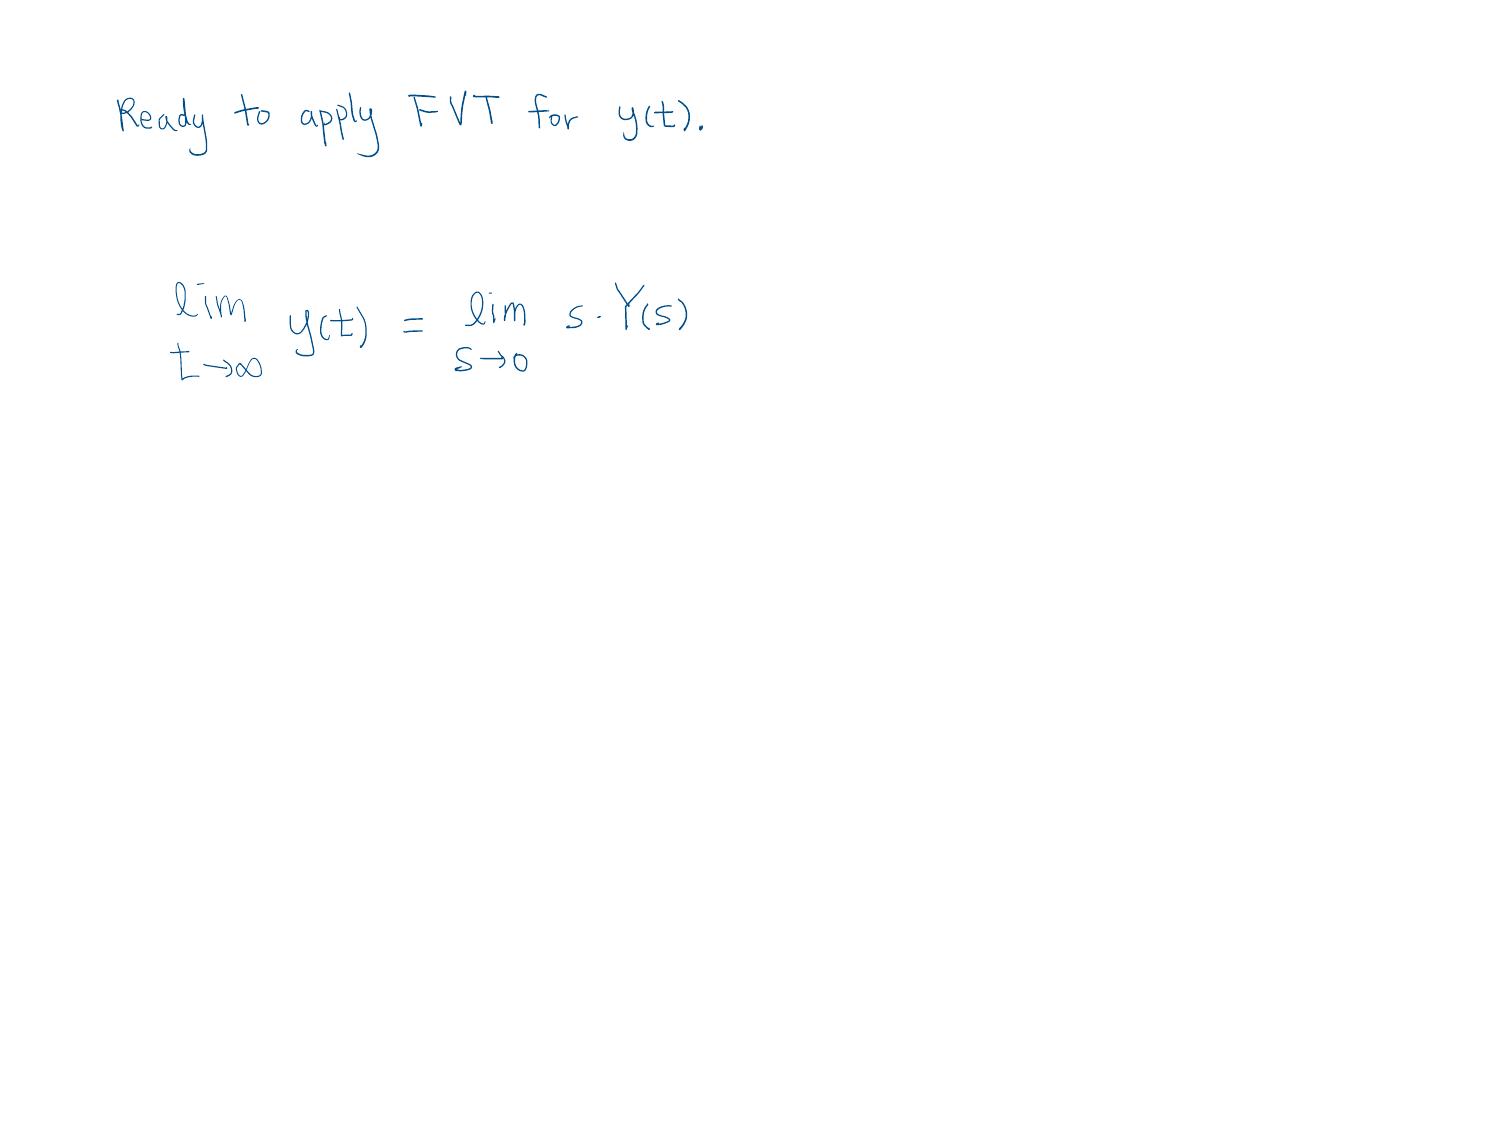 Ready to apply FVT for y(t).
lim y(t) = lim s · Y(s)
t→∞ s→0